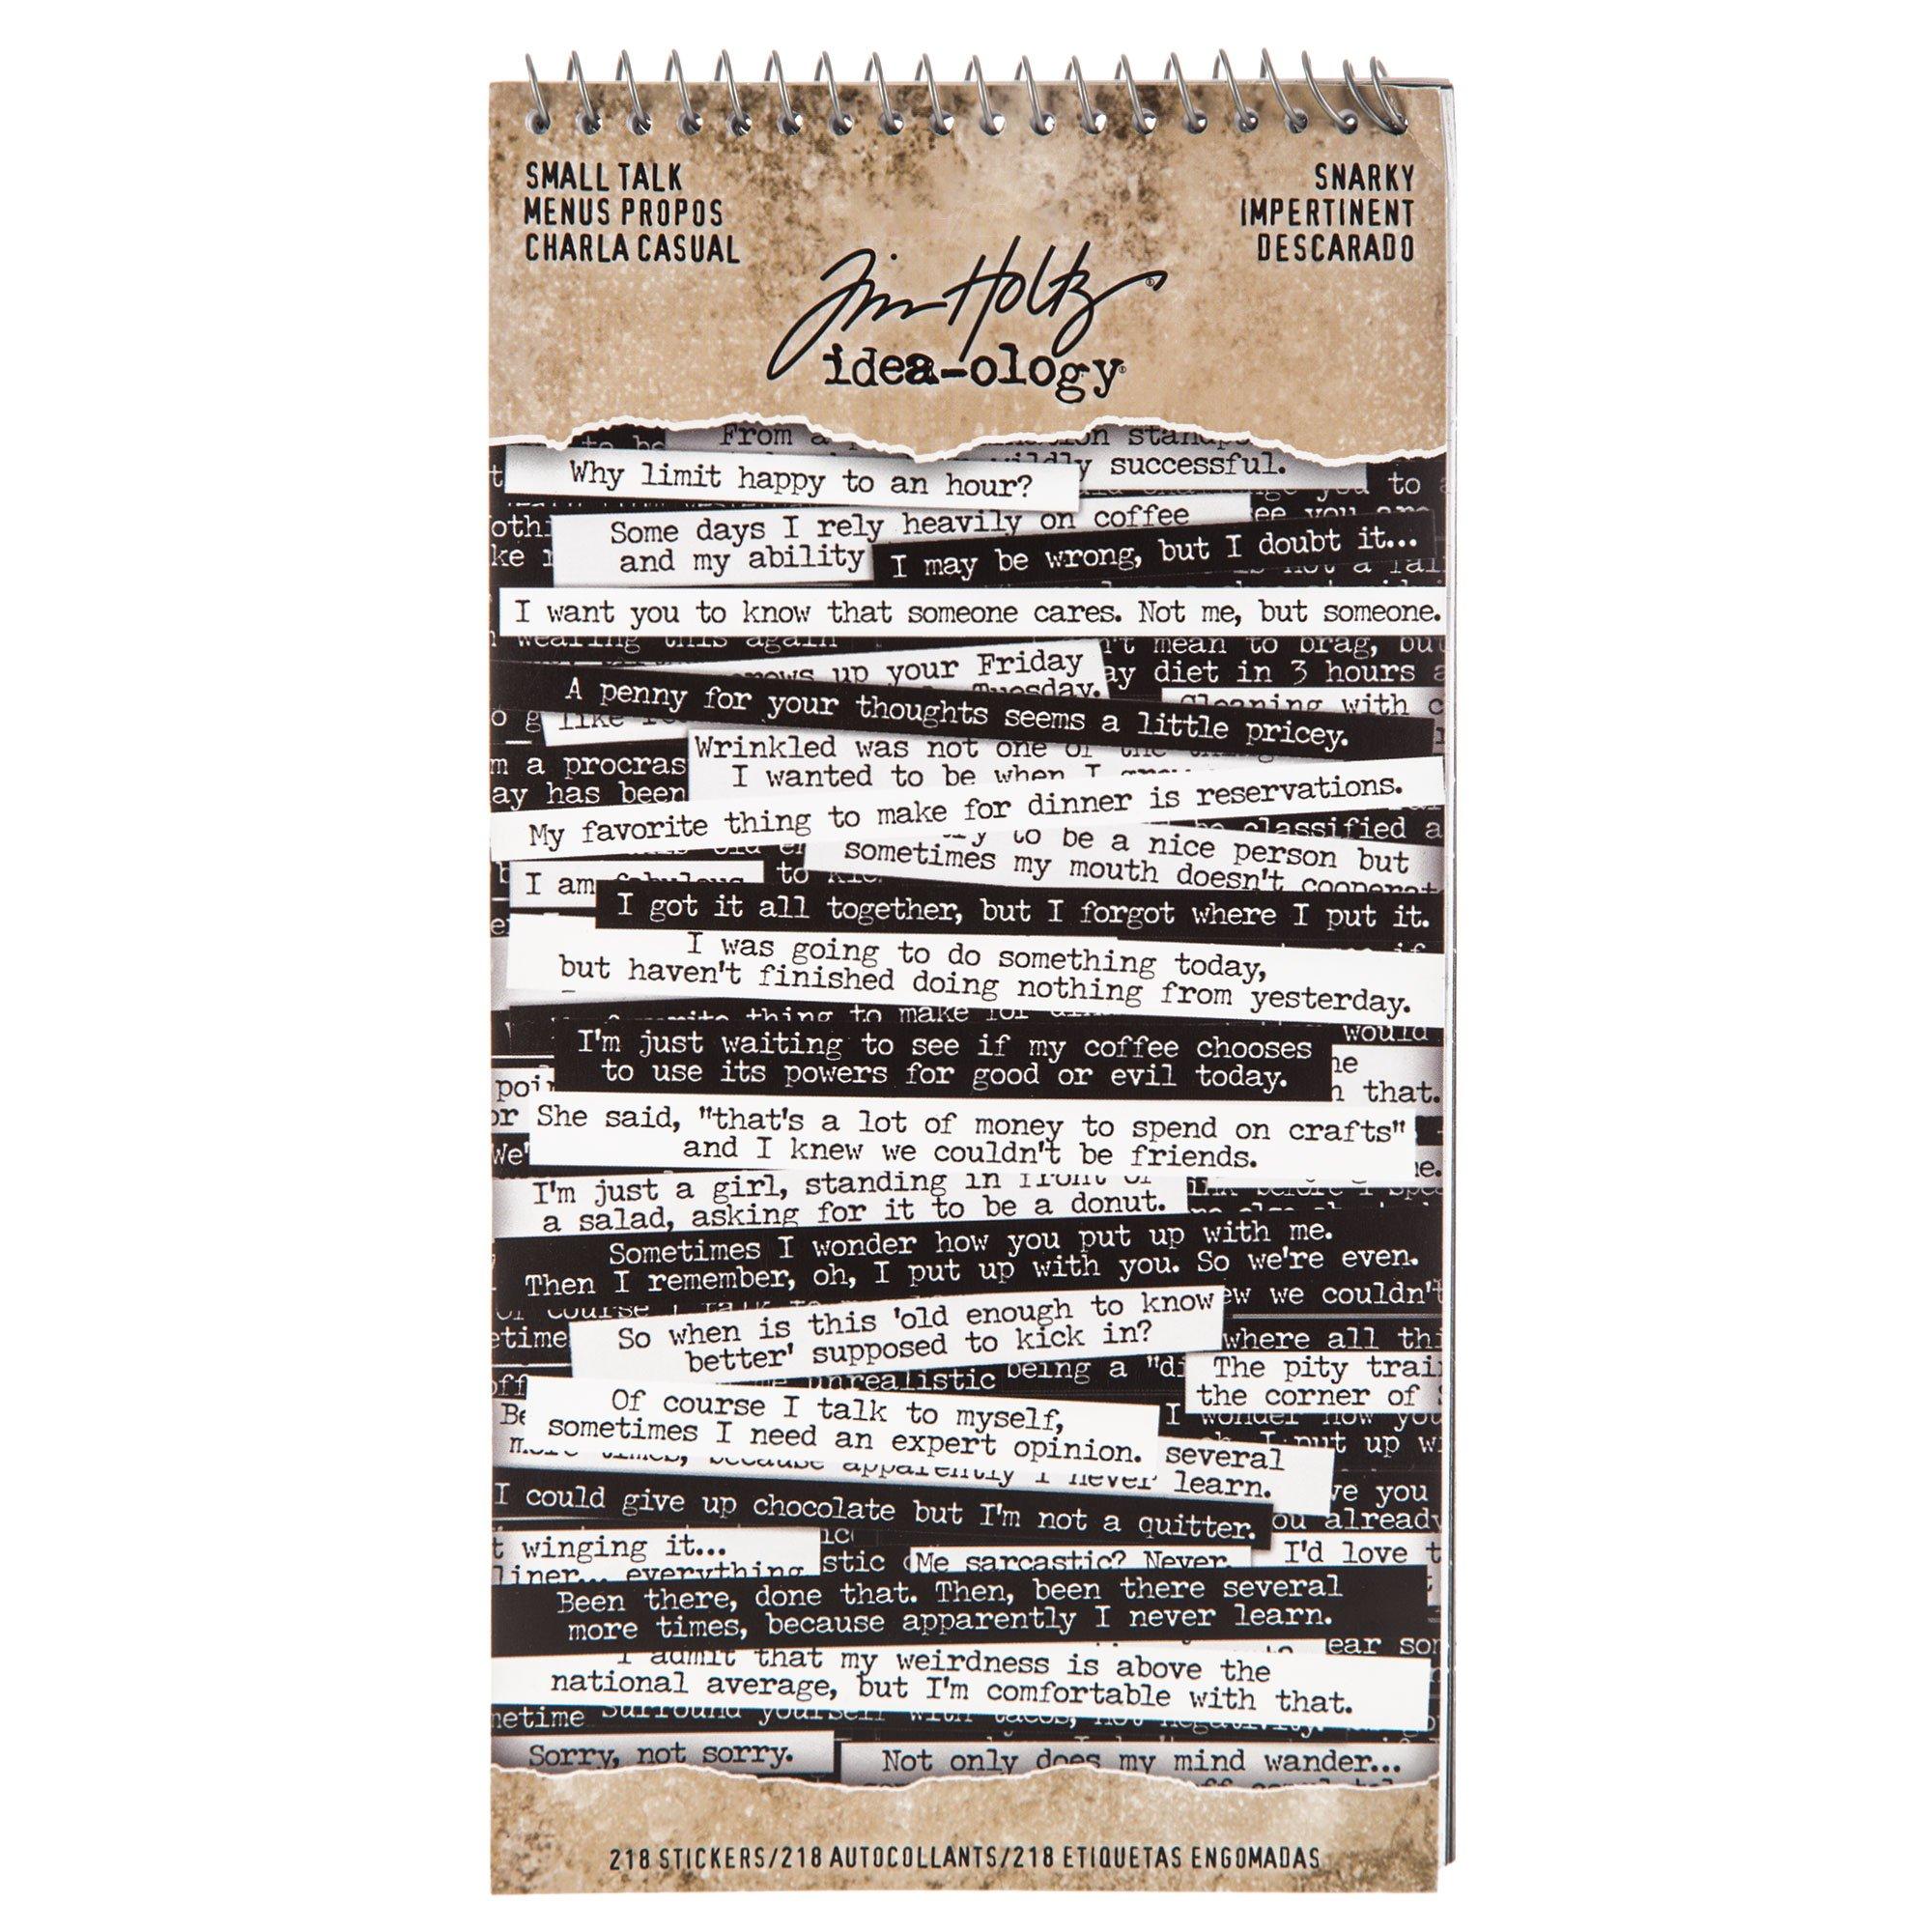 SMALL TALK
MENUS PROPOS
CHARLA CASUAL
SNARKY
IMPERTINENT
DESCARADO
Tim Holtz®
idea-ology®
From a
successful.
Why limit happy to an hour?
Some days I rely heavily on coffee
and my ability
I may be wrong, but I doubt it...
I want you to know that someone cares. Not me, but someone.
wearing this again
mean to brag, bu
up your Friday
Tuesday.
ay diet in 3 hours a
Cleaning with c
A penny for your thoughts seems a little pricey.
Wrinkled was not one of the
I wanted to be when I
m a procras
ay has been
My favorite thing to make for dinner is reservations.
classified a
to be a nice person but
sometimes my mouth doesn't cooperat
I am fabulous
to
I got it all together, but I forgot where I put it.
I was going to do something today,
but haven't finished doing nothing from yesterday.
thing to make for
would
I'm just waiting to see if my coffee chooses
to use its powers for good or evil today.
that.
She said, "that's a lot of money to spend on crafts"
and I knew we couldn't be friends.
We'
I'm just a girl, standing in front of
a salad, asking for it to be a donut.
Sometimes I wonder how you put up with me.
Then I remember, oh, I put up with you. So we're even.
ew we couldn't
So when is this 'old enough to know
better' supposed to kick in?
etime
where all thi
unrealistic
being a "di
The pity trai
the corner of
Of course I talk to myself,
sometimes I need an expert opinion.
I wonder how you
I put up w
several
more times, because apparently I never learn.
I could give up chocolate but I'm not a quitter.
ve you
ou already
t winging it...
liner... everything
stic
Me sarcastic? Never.
I'd love t
Been there, done that. Then, been there several
more times, because apparently I never learn.
ear so
I admit that my weirdness is above the
national average, but I'm comfortable with that.
metime
Surround yourself with tacos, not negativity.
Sorry, not sorry.
Not only does my mind wander...
218 STICKERS/218 AUTOCOLLANTS/218 ETIQUETAS ENGOMADAS